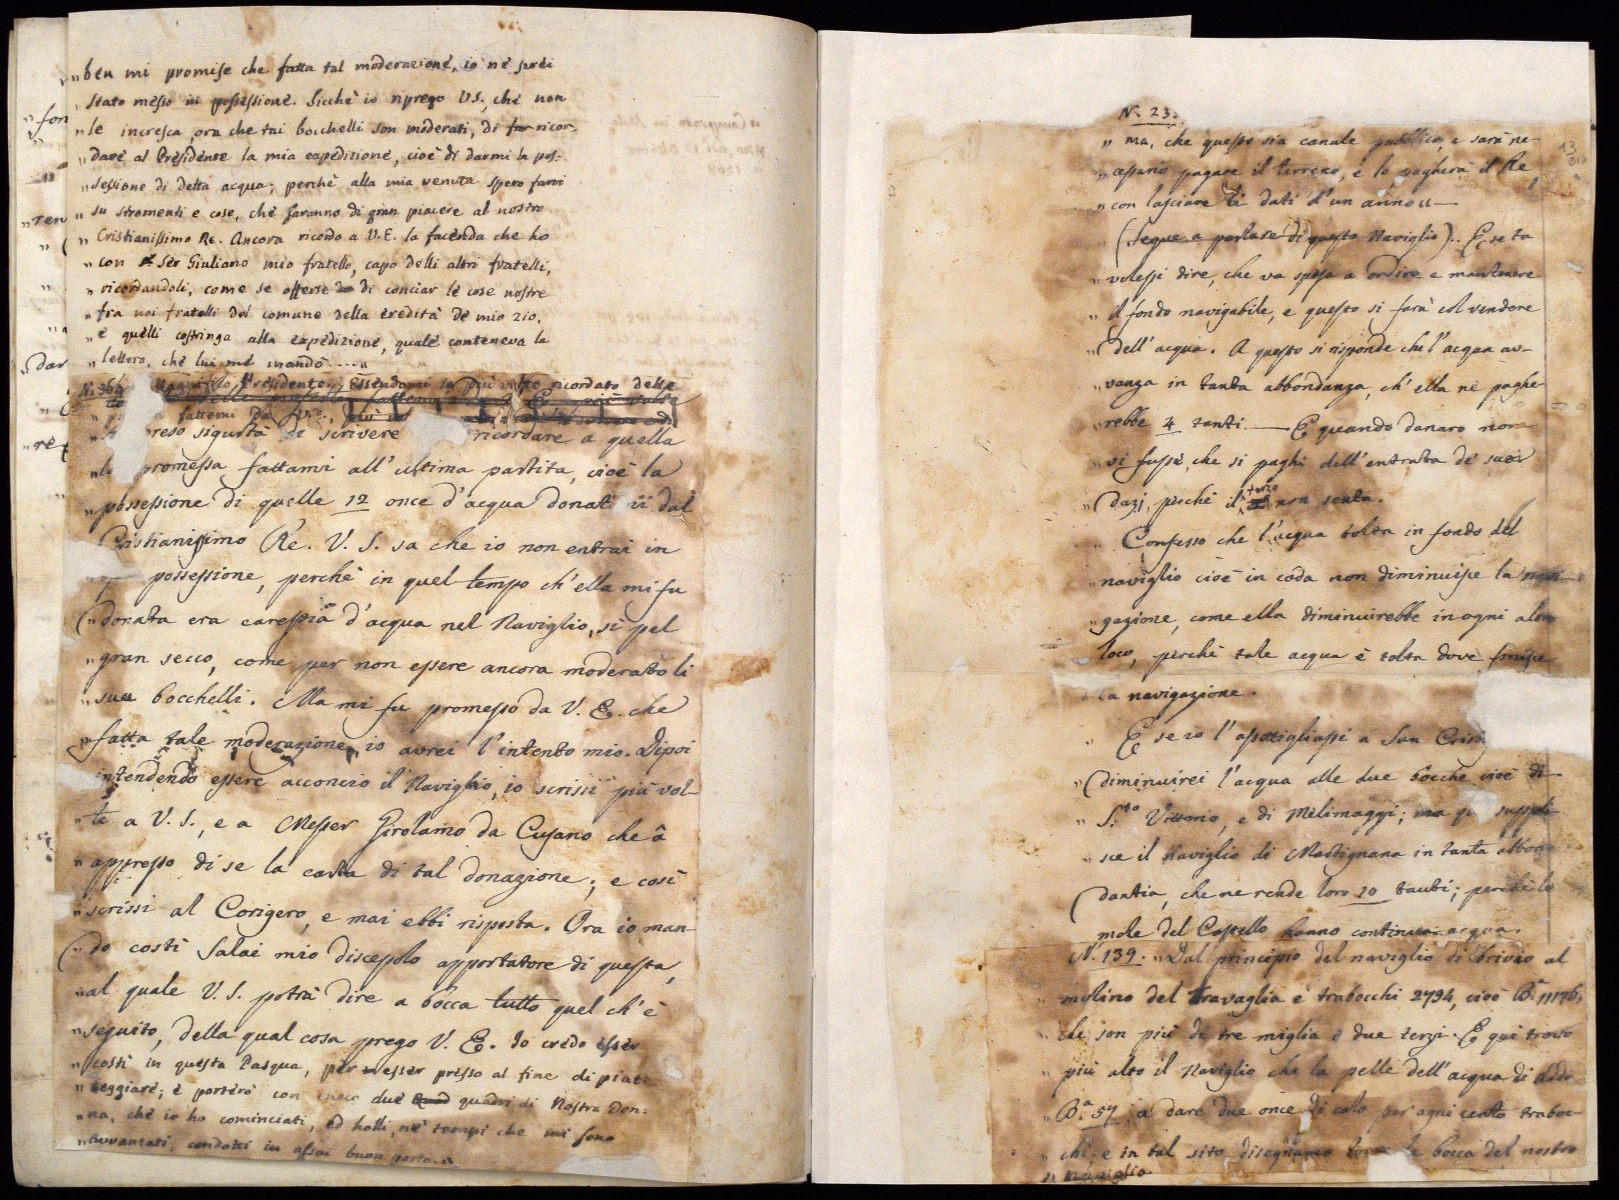 „ ben mi promise che fatta tal moderazione, io ne sarei
„ stato messo in possessione. Sicchè io riprego V.S. che non
„ le incresca, ora che tai bocchelli son moderati, di far ricor-
„ dare al Presidente la mia espedizione, cioè di darmi la pos-
„ sessione di detta acqua; perchè alla mia venuta spero farvi
„ su stromenti e cose, che faranno di gran piacere al nostro
„ Cristianissimo Re. Ancora ricordo a V.E. la facenda che ho
„ con Ser Giuliano mio fratello, capo delli altri fratelli,
„ ricordandoli, come se offerse di conciar le cose nostre
„ fra noi fratelli del comune della eredità de mio zio,
„ e quelli costringa alla expedizione, quale conteneva la
„ lettera, che lui me mandò ....„
Magnifico Presidente. Essendomi io più volte ricordato delle
fattemi da V. E. più
preso sigurtà di scrivere ricordare a quella
promessa fattami all'ultima partita, cioè la
„ possessione di quelle 12 once d'acqua donat dal
Cristianissimo Re. V. S. sa che io non entrai in
possessione, perchè in quel tempo ch'ella mi fu
„ donata era carestia d'acqua nel Naviglio, sì pel
„ gran secco, come per non essere ancora moderatto li
„ sua bocchelli. Ma mi fu promesso da V. E. che
„ fatta tale moderazione, io avrei l'intento mio. Dipoi
intendendo essere acconcio il Naviglio, io scrissi più vol-
„ te a V. S., e a Messer Girolamo da Cusano che à
„ appresso di se la carta di tal donazione; e così
„ scrissi al Corigero, e mai ebbi risposta. Ora io man-
„ do costì Salai mio discepolo apportatore di questa,
„ al quale V. S. potrà dire a bocca tutto quel ch'è
„ seguito, della qual cosa prego V. E. Io credo esser
„ costì in questa Pasqua, per esser presso al fine di piat-
„ teggiare; e porterò con meco due quadri di Nostra Don-
„ na, che io ho cominciati, ed holli, ne' tempi che mi sono
„ avvanzati, condotti in assai buon porto. „
N. 23.
„ ma, che questo sia canale pubblico e sarà ne-
„ cessario pagare il terreno, e lo pagherà il Re,
„ con lasciare li dati d'un anno „ —
(Segue a parlare di questo Naviglio). E se tu
„ volessi dire, che va spesa a ordire e mantenere
„ il fondo navigabile, e questo si farà col vendere
„ dell'acqua. A questo si risponde che l'acqua av-
„ vanza in tanta abbondanza, ch'ella ne paghe-
„ rebbe 4 tanti. — E quando danaro non
„ vi fusse, che si paghi dell'entrata de' suoi
„ dazj, perchè il terzo non senta.
„ Confesso che l'acqua tolta in fondo del
„ naviglio cioè in coda non diminuisce la navi-
„ gazione, come ella diminuirebbe in ogni altro
„ loco, perchè tale acqua è tolta dove finisce
„ la navigazione.
„ E se io l'assottigliassi a San Cristo
„ diminuirei l'acqua alle due bocche cioè di
„ S.to Vittorio, e di Melimaggi; ma poi suppli-
„ sce il Naviglio di Martignana in tanta abbon-
„ dantia, che ne rende loro 10 tanti; perchè le
mole del Castello hanno continua acqua.
N. 139. „ Dal principio del naviglio di Brivio al
„ molino del Travaglia è trabocchi 2794, cioè B.a 11176,
„ che son più di tre miglia e due terzi. E qui trovo
„ più alto il Naviglio che la pelle dell'acqua di Adda
„ B.a 57, a dare due once di calo per ogni cento traboc-
„ chi e in tal sito disegniamo torre la bocca del nostro
„ Naviglio.